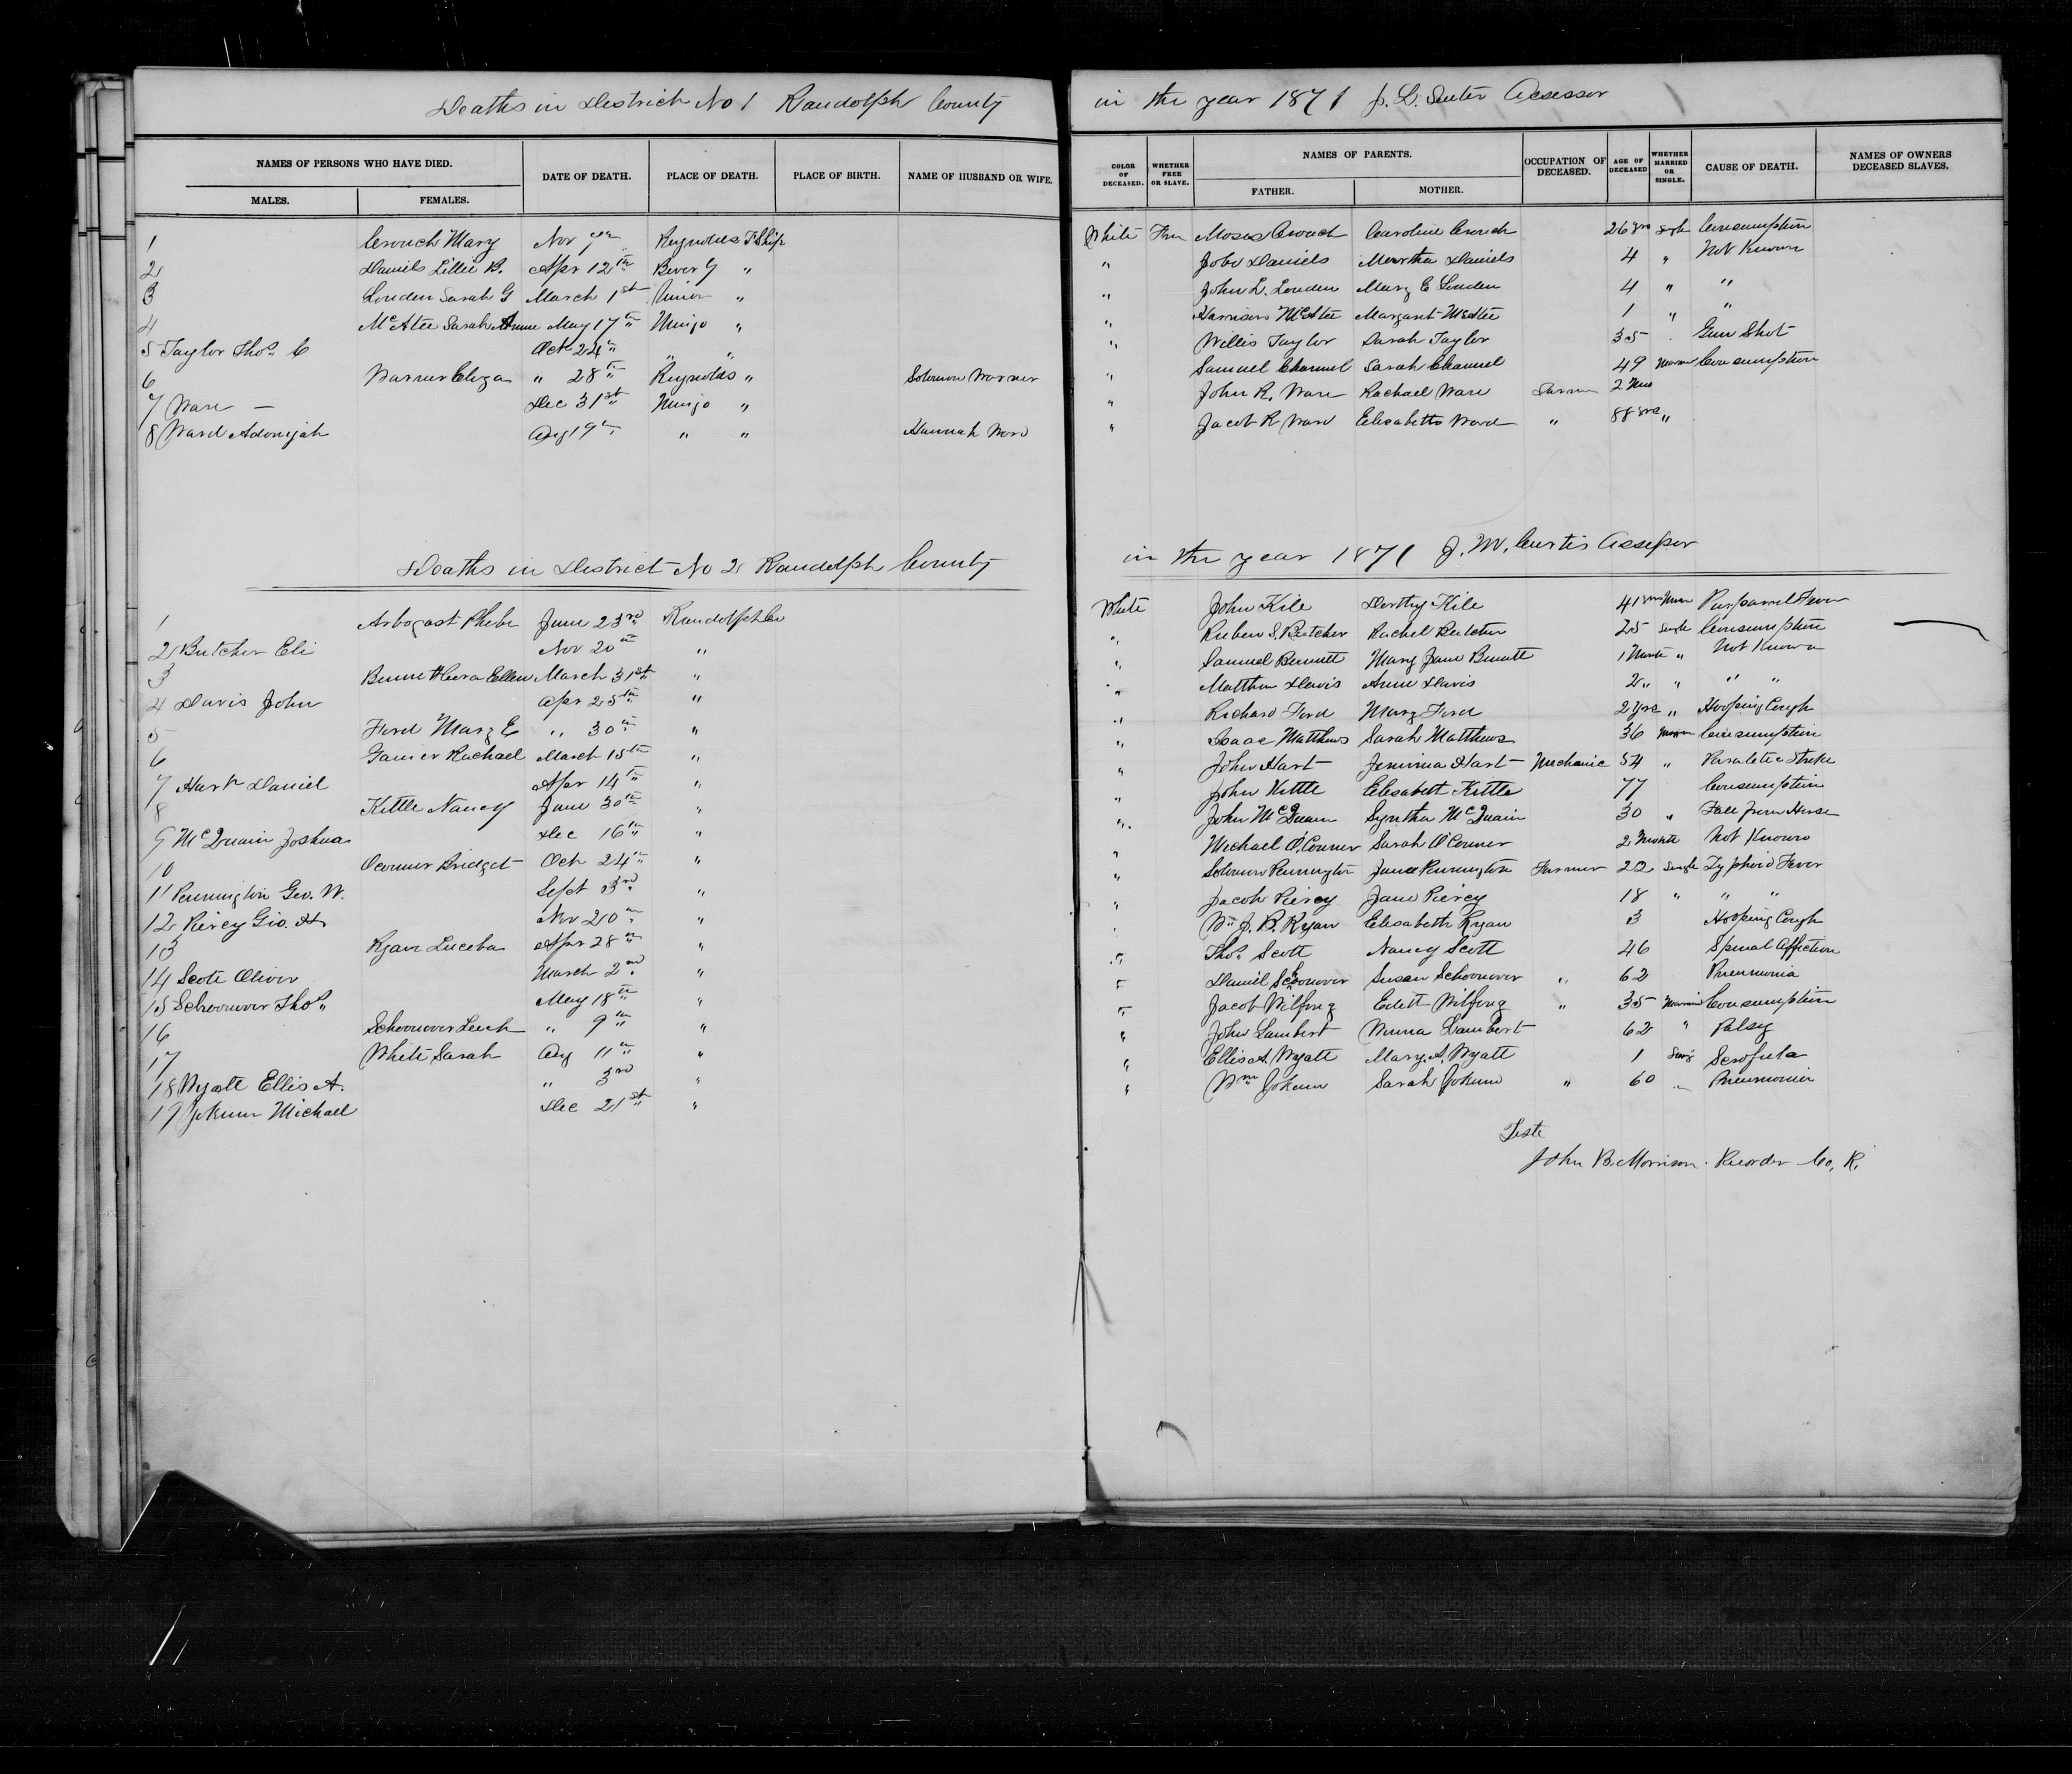 Deaths in District No 1 Randolph County in the year 1871 J. L. Suiter Assessor
NAMES OF PERSONS WHO HAVE DIED. DATE OF DEATH. PLACE OF DEATH. PLACE OF BIRTH. NAME OF HUSBAND OR WIFE. COLOR OF DECEASED. WHETHER FREE OR SLAVE. NAMES OF PARENTS. OCCUPATION OF DECEASED. AGE OF DECEASED WHETHER MARRIED OR SINGLE. CAUSE OF DEATH. NAMES OF OWNERS DECEASED SLAVES.
MALES. FEMALES. FATHER. MOTHER.
1 Crouch Mary Nov 7th Reynolds T.Ship White Free Moses Crouch Caroline Crouch 26 yrs Single Consumption
2 Daniels Lillie B. Apr 12th Bever Y " " Job Daniels Martha Daniels 4 " Not Known
3 Louden Sarah G March 1st Union " " John L. Louden Mary E Louden 4 " "
4 McAtee Sarah Anne May 17th Mingo " " Harrison McAtee Margaret McAtee 1 " "
5 Taylor Thos C Oct 24th " " " Willis Taylor Sarah Taylor 35 Gun Shot
6 Warner Eliza " 28th Reynolds " Solomon Warner " Samuel Channel Sarah Channel 49 Married Consumption
7 Ware — Dec 31st Mingo " " John R. Ware Rachael Ware Farmer 2 Mos
8 Ward Adonijah Aug 19th " " Hannah Ward " Jacob R Ward Elisabeth Ward " 88 yrs "
Deaths in District No 2 Randolph County in the year 1871 J. W. Curtis Assessor
1 Arbogast Phebe June 23rd Randolph Co White John Kile Dorthy Kile 41 yrs Marr Purparrel Fever
2 Butcher Eli Nov 20th " " Ruben S. Butcher Rachel Butcher 25 Single Consumption
3 Bennett Cora Ellen March 31st " " Samuel Bennett Mary Jane Bennett 1 Month " Not Known
4 Davis John Apr 25th " " Matthew Davis Anne Davis 2 " " " "
5 Ford Mary E " 30th " " Richard Ford Mary Ford 2 yrs " Hooping Cough
6 Gainer Rachael March 15th " " Isaac Matthews Sarah Matthews 36 Marr Consumption
7 Hart Daniel Apr 14th " " John Hart Jemima Hart Mechanic 54 " Paraletic Stroke
8 Kittle Nancy June 30th " " John Kittle Elisabeth Kittle 77 Consumption
9 McQuain Joshua Dec 16th " " John McQuain Syntha McQuain 30 " Fall from Horse
10 Oconner Bridget Oct 24th " " Michael O'Conner Sarah O'Conner 2 Month Not Known
11 Pennington Geo. W. Sept 3rd " " Solomon Pennington Jane Pennington Farmer 22 Single Typhoid Fever
12 Piercy Geo. H Nov 20th " " Jacob Piercy Jane Piercy 18 " " "
13 Ryan Luceba Apr 28th " " Wm J. B. Ryan Elisabeth Ryan 3 Hooping Cough
14 Scott Oliver March 2nd " " Thos Scott Nancy Scott 46 Spinal Affiction
15 Schoonover Thos May 18th " " Daniel Schoonover Susan Schoonover " 62 Pneumonia
16 Schoonover Leah " 9th " " Jacob Wilfong Edith Wilfong " 35 Married Consumption
17 White Sarah Aug 11th " " John Lambert Lambert 62 " Palsy
18 Wyatt Ellis A. " 3rd " " Ellis A. Wyatt Mary A. Wyatt 1 Sing Scrofula
19 Yokum Michael Dec 21st " " Wm Yokum Sarah Yokum " 60 " Pneumonia
Teste
John B. Morrison. Recorder Co. R.